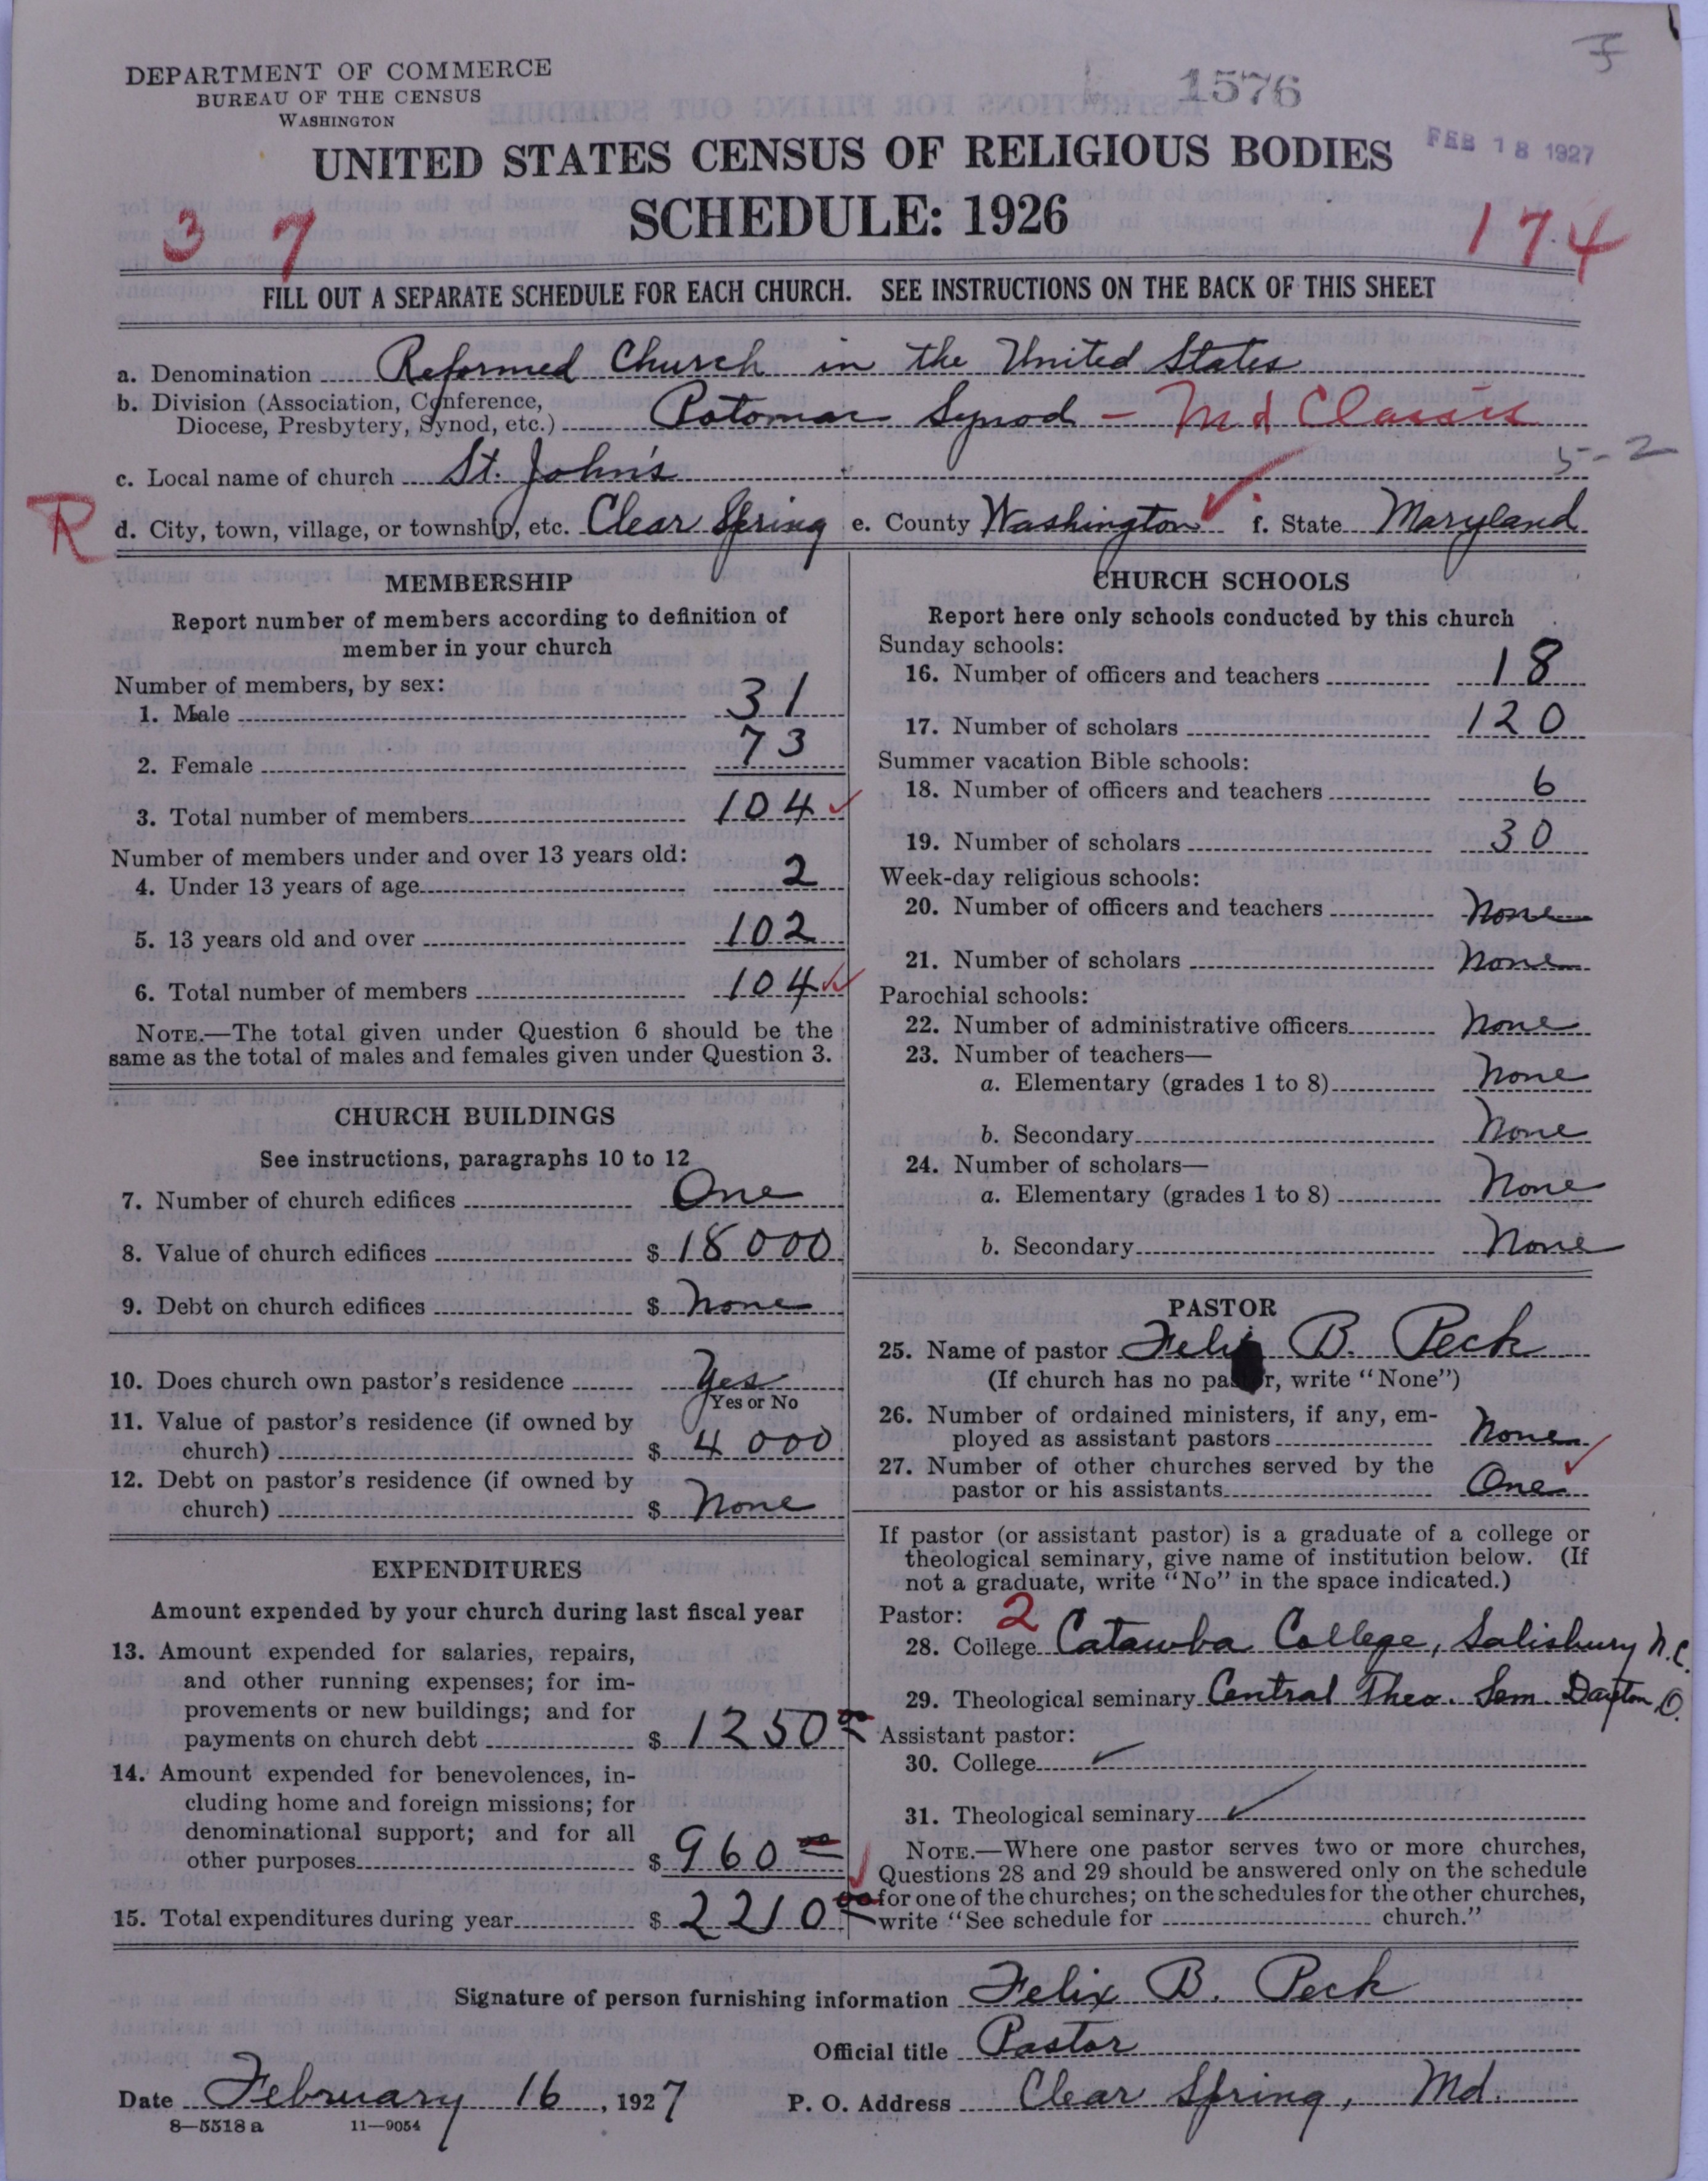 DEPARTMENT OF COMMERCE
BUREAU OF THE CENSUS
WASHINGTON
1576
UNITED STATES CENSUS OF RELIGIOUS BODIES
FEB 18 1927
SCHEDULE: 1926
3 7
174
FILL OUT A SEPARATE SCHEDULE FOR EACH CHURCH. SEE INSTRUCTIONS ON THE BACK OF THIS SHEET
a. Denomination Reformed Church in the United States
b. Division (Association, Conference,
Diocese, Presbytery, Synod, etc.) Potomac Synod – Md Classis
5-2
c. Local name of church St. John's
R
d. City, town, village, or township, etc. Clear Spring e. County Washington f. State Maryland
MEMBERSHIP
Report number of members according to definition of
member in your church
Number of members, by sex:
1. Male 31
2. Female 73
3. Total number of members 104
Number of members under and over 13 years old:
4. Under 13 years of age 2
5. 13 years old and over 102
6. Total number of members 104
NOTE.—The total given under Question 6 should be the
same as the total of males and females given under Question 3.
CHURCH BUILDINGS
See instructions, paragraphs 10 to 12
7. Number of church edifices One
8. Value of church edifices $ 18000
9. Debt on church edifices $ None
10. Does church own pastor's residence Yes
Yes or No
11. Value of pastor's residence (if owned by
church) $ 4000
12. Debt on pastor's residence (if owned by
church) $ None
EXPENDITURES
Amount expended by your church during last fiscal year
13. Amount expended for salaries, repairs,
and other running expenses; for im-
provements or new buildings; and for
payments on church debt $ 1250 00
14. Amount expended for benevolences, in-
cluding home and foreign missions; for
denominational support; and for all
other purposes $ 960 00
15. Total expenditures during year $ 2210 00
CHURCH SCHOOLS
Report here only schools conducted by this church
Sunday schools:
16. Number of officers and teachers 18
17. Number of scholars 120
Summer vacation Bible schools:
18. Number of officers and teachers 6
19. Number of scholars 30
Week-day religious schools:
20. Number of officers and teachers None
21. Number of scholars None
Parochial schools:
22. Number of administrative officers None
23. Number of teachers—
a. Elementary (grades 1 to 8) None
b. Secondary None
24. Number of scholars—
a. Elementary (grades 1 to 8) None
b. Secondary None
PASTOR
25. Name of pastor Felix B. Peck
(If church has no pastor, write "None")
26. Number of ordained ministers, if any, em-
ployed as assistant pastors None
27. Number of other churches served by the
pastor or his assistants One
If pastor (or assistant pastor) is a graduate of a college or
theological seminary, give name of institution below. (If
not a graduate, write "No" in the space indicated.)
Pastor: 2
28. College Catawba College, Salisbury N.C.
29. Theological seminary Central Theo. Sem. Dayton, O.
Assistant pastor:
30. College
31. Theological seminary
NOTE.—Where one pastor serves two or more churches,
Questions 28 and 29 should be answered only on the schedule
for one of the churches; on the schedules for the other churches,
write "See schedule for church."
Signature of person furnishing information Felix B. Peck
Official title Pastor
Date February 16, 1927 P. O. Address Clear Spring, Md.
8—5518 a 11—9054